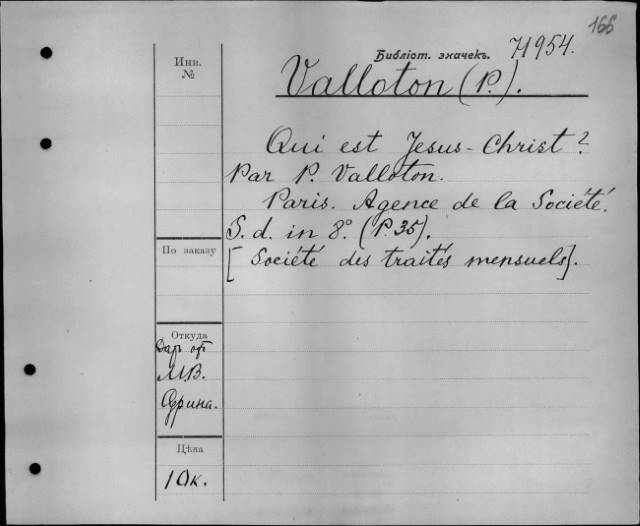 166
Библіот. значекъ. 71954.
Инв.
№
Valloton (P.).
Qui est Jesus-Christ?
Par P. Valloton.
Paris. Agence de la Société.
S. d. in 8°. (P. 35).
[Société des traités mensuels].
По заказу
Откуда
Даръ от
М.В.
Цѣна
10к.